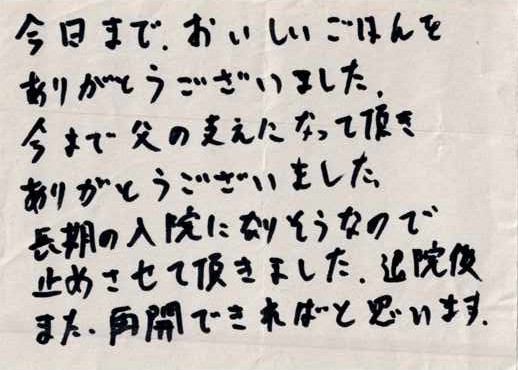 今日まで、おいしいごはんを
ありがとうございました、
今まで父の支えになって頂き
ありがとうございました、
長期の入院になりそうなので
止めさせて頂きました、退院後
また、再開できればと思います、